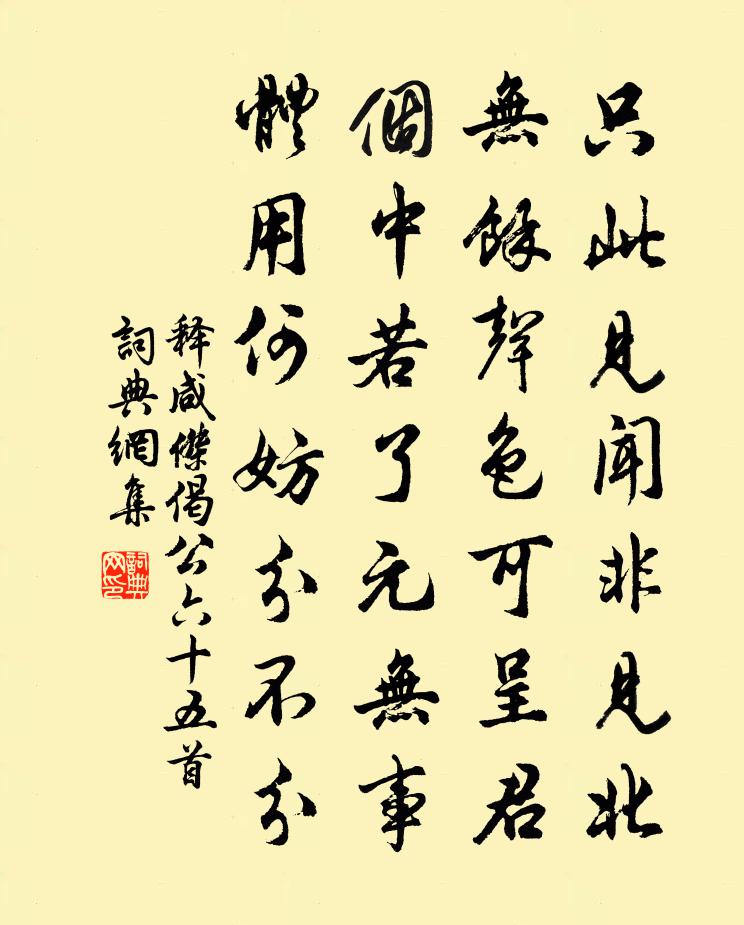 只此見聞非見北
無餘聲色可呈君
個中若了元無事
體用何妨分不分
释咸傑偈公六十五首
詞典網集
詞典网印